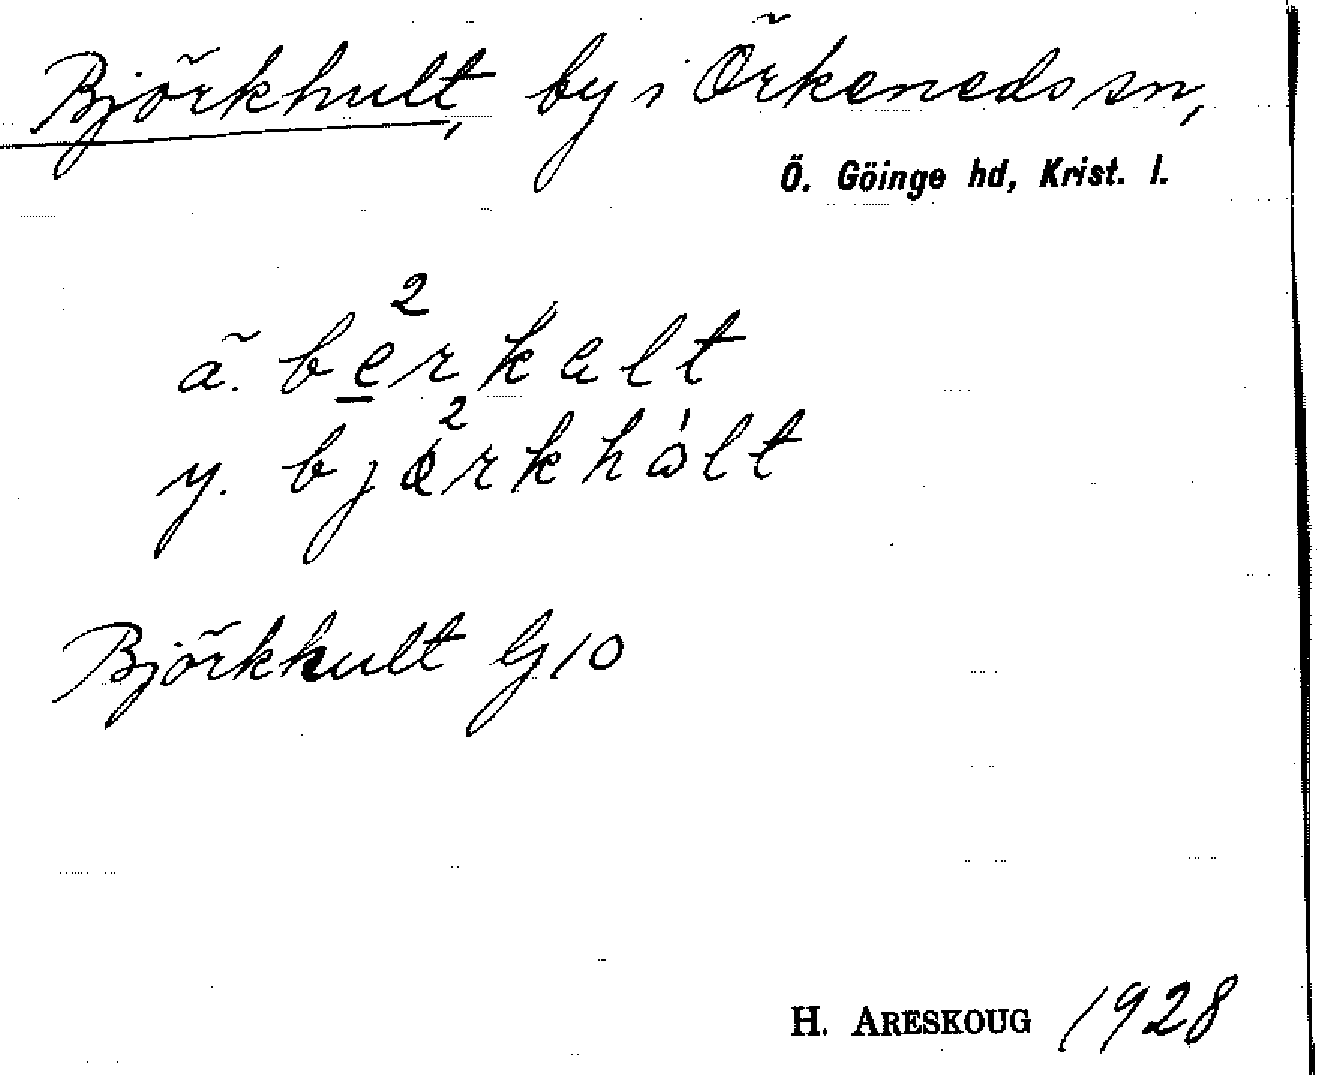 Björkhult, by i Örkeneds sn,
Ö. Göinge hd, Krist. l.
2
ä. berkalt
2
y. bjærkhàlt
Björkhult G 10
H. ARESKOUG 1928